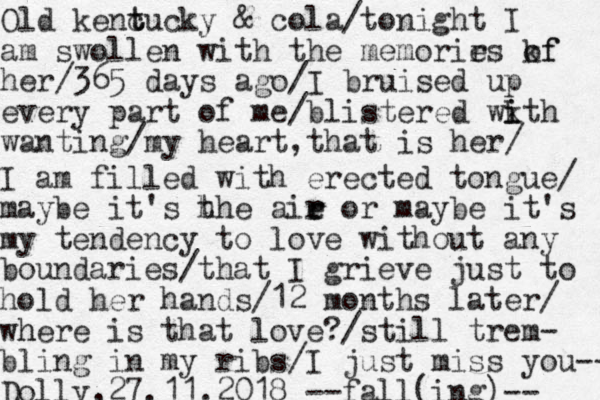 Old kentucky & cola/tonight I
am swollen with the memories of
her/365 days ago/I bruised up
every part of me/blistered with
wanting/my heart,that is her/
I am filled with erected tongue/
maybe it's the air or maybe it's
my tendency to love without any
boundaries/that I grieve just to
hold her hands/12 months later/
where is that love?/still trem-
bling in my ribs/I just miss you--
Dolly.27.11.2018 --fall(ing)--